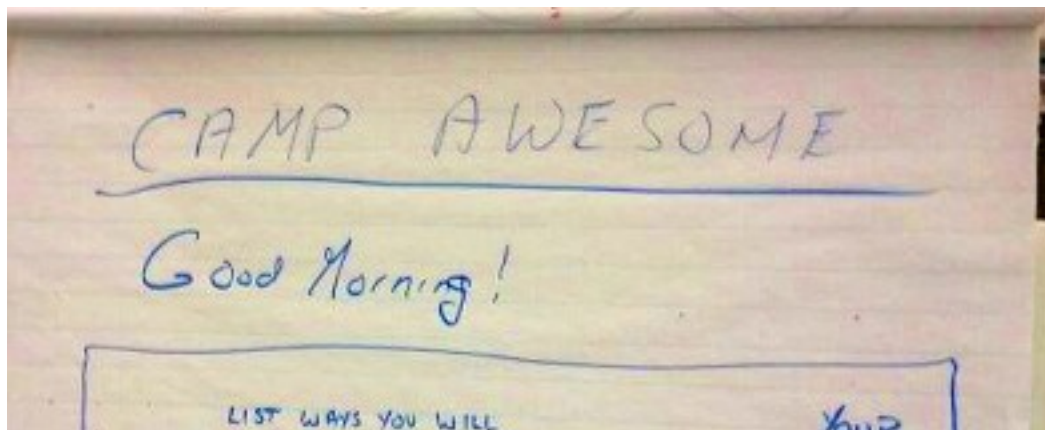 CAMP AWESOME
Good Morning!
LIST WAYS YOU WILL YOUR